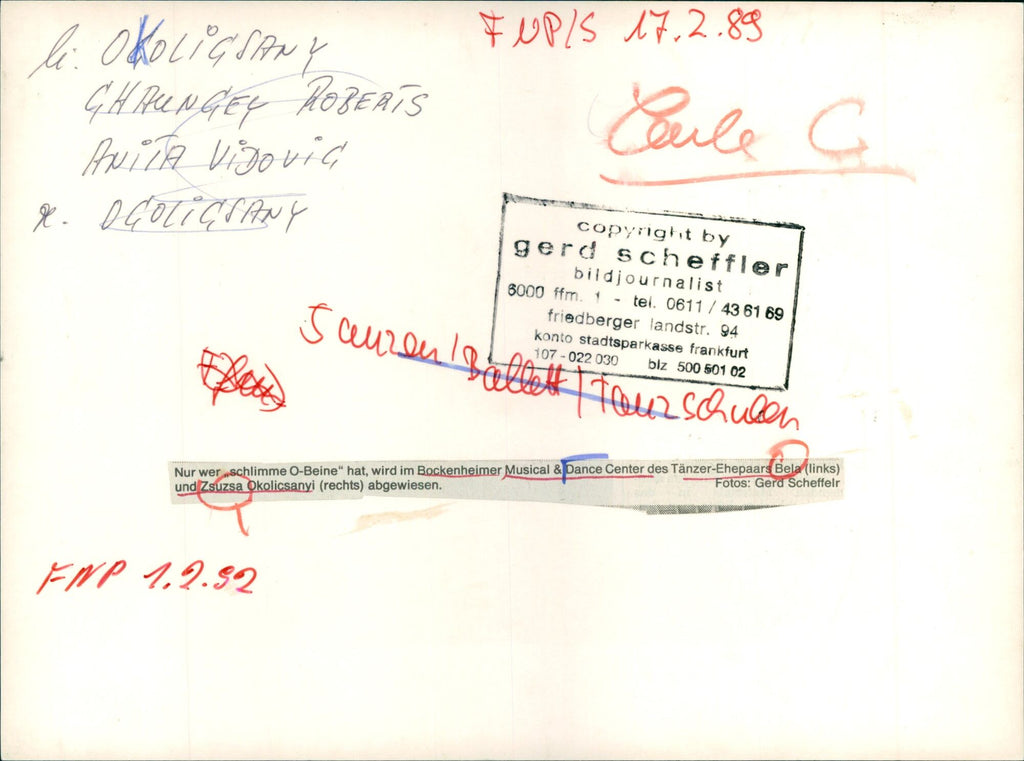 FNP/S 17.2.89
li. OKOLICSANY
CHAUNCEY ROBERTS
ANITA VIDOVIC
r. OCOLICSANY
copyright by
gerd scheffler
bildjournalist
6000 ffm. 1 - tel. 0611 / 43 61 69
friedberger landstr. 94
konto stadtsparkasse frankfurt
107-022 030 blz 500 501 02
Tanzen/Ballett/Tanzschulen
Nur wer „schlimme O-Beine“ hat, wird im Bockenheimer Musical & Dance Center des Tänzer-Ehepaars Bela (links)
und Zsuzsa Okolicsanyi (rechts) abgewiesen. Fotos: Gerd Scheffelr
FNP 1.2.92